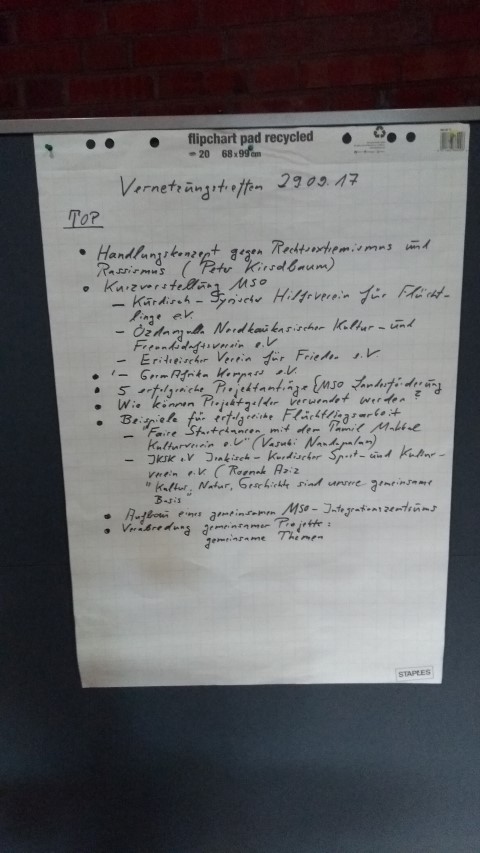 flipchart pad recycled
20 68 x 99 cm
Vernetzungstreffen 29.09.17
TOP
• Handlungskonzept gegen Rechtsextremismus und
Rassismus (Peter Kirschbaum)
• Kurzvorstellung MSO
– Kurdisch-Syrischer Hilfsverein für Flücht-
linge e.V.
– Özdangala Nordkaukasischer Kultur- und
Freundschaftsverein e.V
– Eritreischer Verein für Frieden e.V
• – GermAfrika Kompass e.V.
• 5 erfolgreiche Projektanträge (MSO Landesförderung
• Wie können Projektgelder verwendet werden?
• Beispiele für erfolgreiche Flüchtlingsarbeit
– "Faire Startchancen mit dem Tamil Makkal
Kulturverein e.V" (Vasuki Nandapalan)
– IKSK e.V Irakisch-Kurdischer Sport- und Kultur-
verein e.V. (Roonak Aziz
"Kultur, Natur, Geschichte sind unsere gemeinsame
Basis"
• Aufbau eines gemeinsamen MSO-Integrationszentrums
• Verabredung gemeinsamer Projekte:
gemeinsame Themen
STAPLES